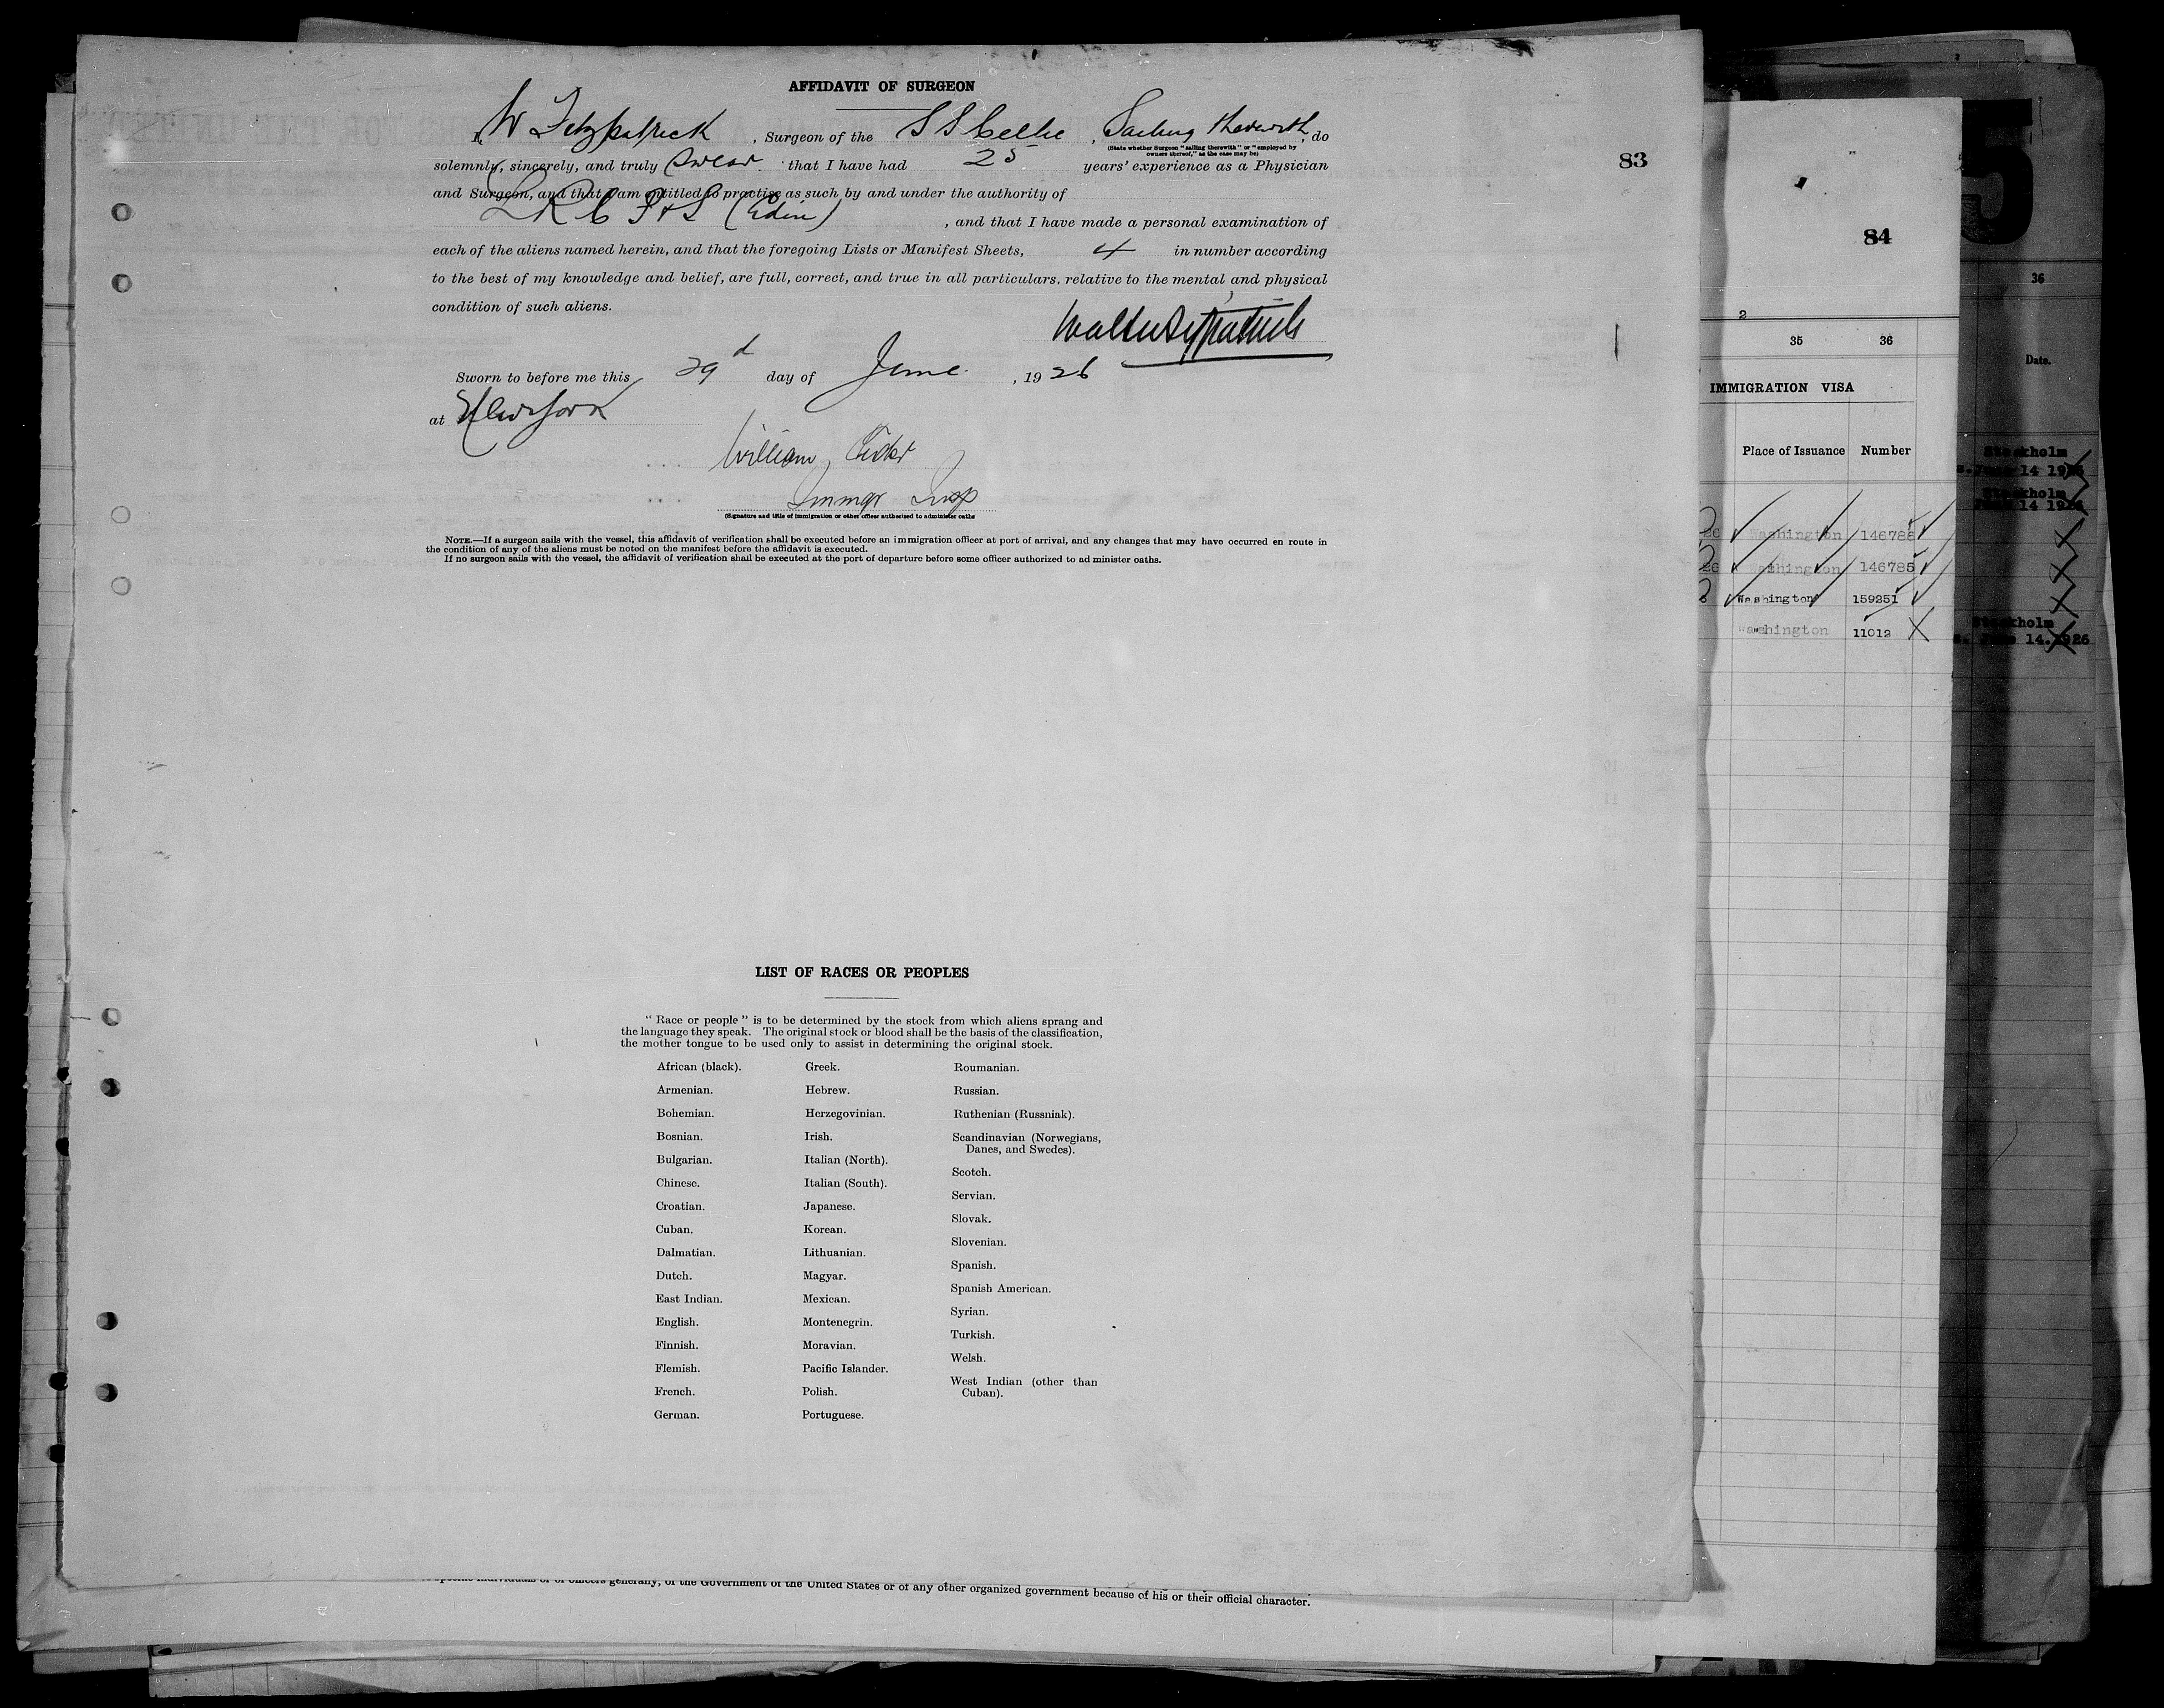 AFFIDAVIT OF SURGEON
I, W Fitzpatrick, Surgeon of the S S Celtic, Sailing therewith, do
(State whether Surgeon "sailing therewith" or "employed by
owners thereof," as the case may be)
solemnly, sincerely, and truly swear that I have had 25 years' experience as a Physician
and Surgeon, and that I am entitled to practise as such by and under the authority of
L R C P & S (Edin) , and that I have made a personal examination of
each of the aliens named herein, and that the foregoing Lists or Manifest Sheets, 4 in number according
to the best of my knowledge and belief, are full, correct, and true in all particulars, relative to the mental and physical
condition of such aliens.
Walter Fitzpatrick
Sworn to before me this 29 d day of June, 19 26
at New York
William
Immgr Insp
(Signature and title of immigration or other officer authorised to administer oaths
NOTE.—If a surgeon sails with the vessel, this affidavit of verification shall be executed before an immigration officer at port of arrival, and any changes that may have occurred en route in
the condition of any of the aliens must be noted on the manifest before the affidavit is executed.
If no surgeon sails with the vessel, the affidavit of verification shall be executed at the port of departure before some officer authorized to ad minister oaths.
LIST OF RACES OR PEOPLES
" Race or people " is to be determined by the stock from which aliens sprang and
the language they speak. The original stock or blood shall be the basis of the classification,
the mother tongue to be used only to assist in determining the original stock.
African (black).
Armenian.
Bohemian.
Bosnian.
Bulgarian.
Chinese.
Croatian.
Cuban.
Dalmatian.
Dutch.
East Indian.
English.
Finnish.
Flemish.
French.
German.
Greek.
Hebrew.
Herzegovinian.
Irish.
Italian (North).
Italian (South).
Japanese.
Korean.
Lithuanian.
Magyar.
Mexican.
Montenegrin.
Moravian.
Pacific Islander.
Polish.
Portuguese.
Roumanian.
Russian.
Ruthenian (Russniak).
Scandinavian (Norwegians,
Danes, and Swedes).
Scotch.
Servian.
Slovak.
Slovenian.
Spanish.
Spanish American.
Syrian.
Turkish.
Welsh.
West Indian (other than
Cuban).
generally, of the Government of the United States or of any other organized government because of his or their official character.
83
84
2
35 36
IMMIGRATION VISA
Place of Issuance Number
Washington 146785
Washington 159251
Washington 11012
5
36
Date.
Stockholm
June 14 1926
Stockholm
June 14 1926
Stockholm
June 14.1926